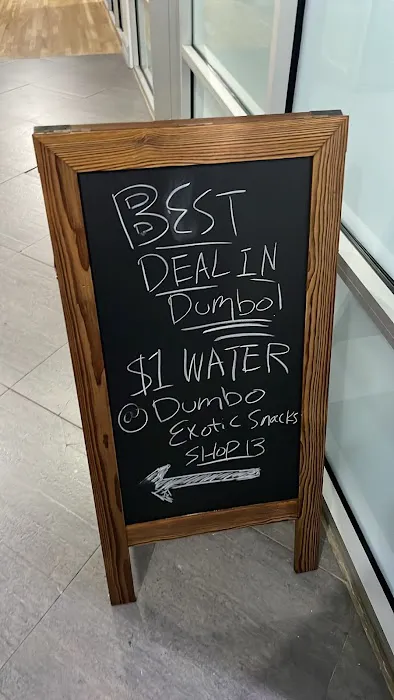 BEST
DEAL IN
Dumbo!
$1 WATER
@ Dumbo
Exotic Snacks
SHOP 13